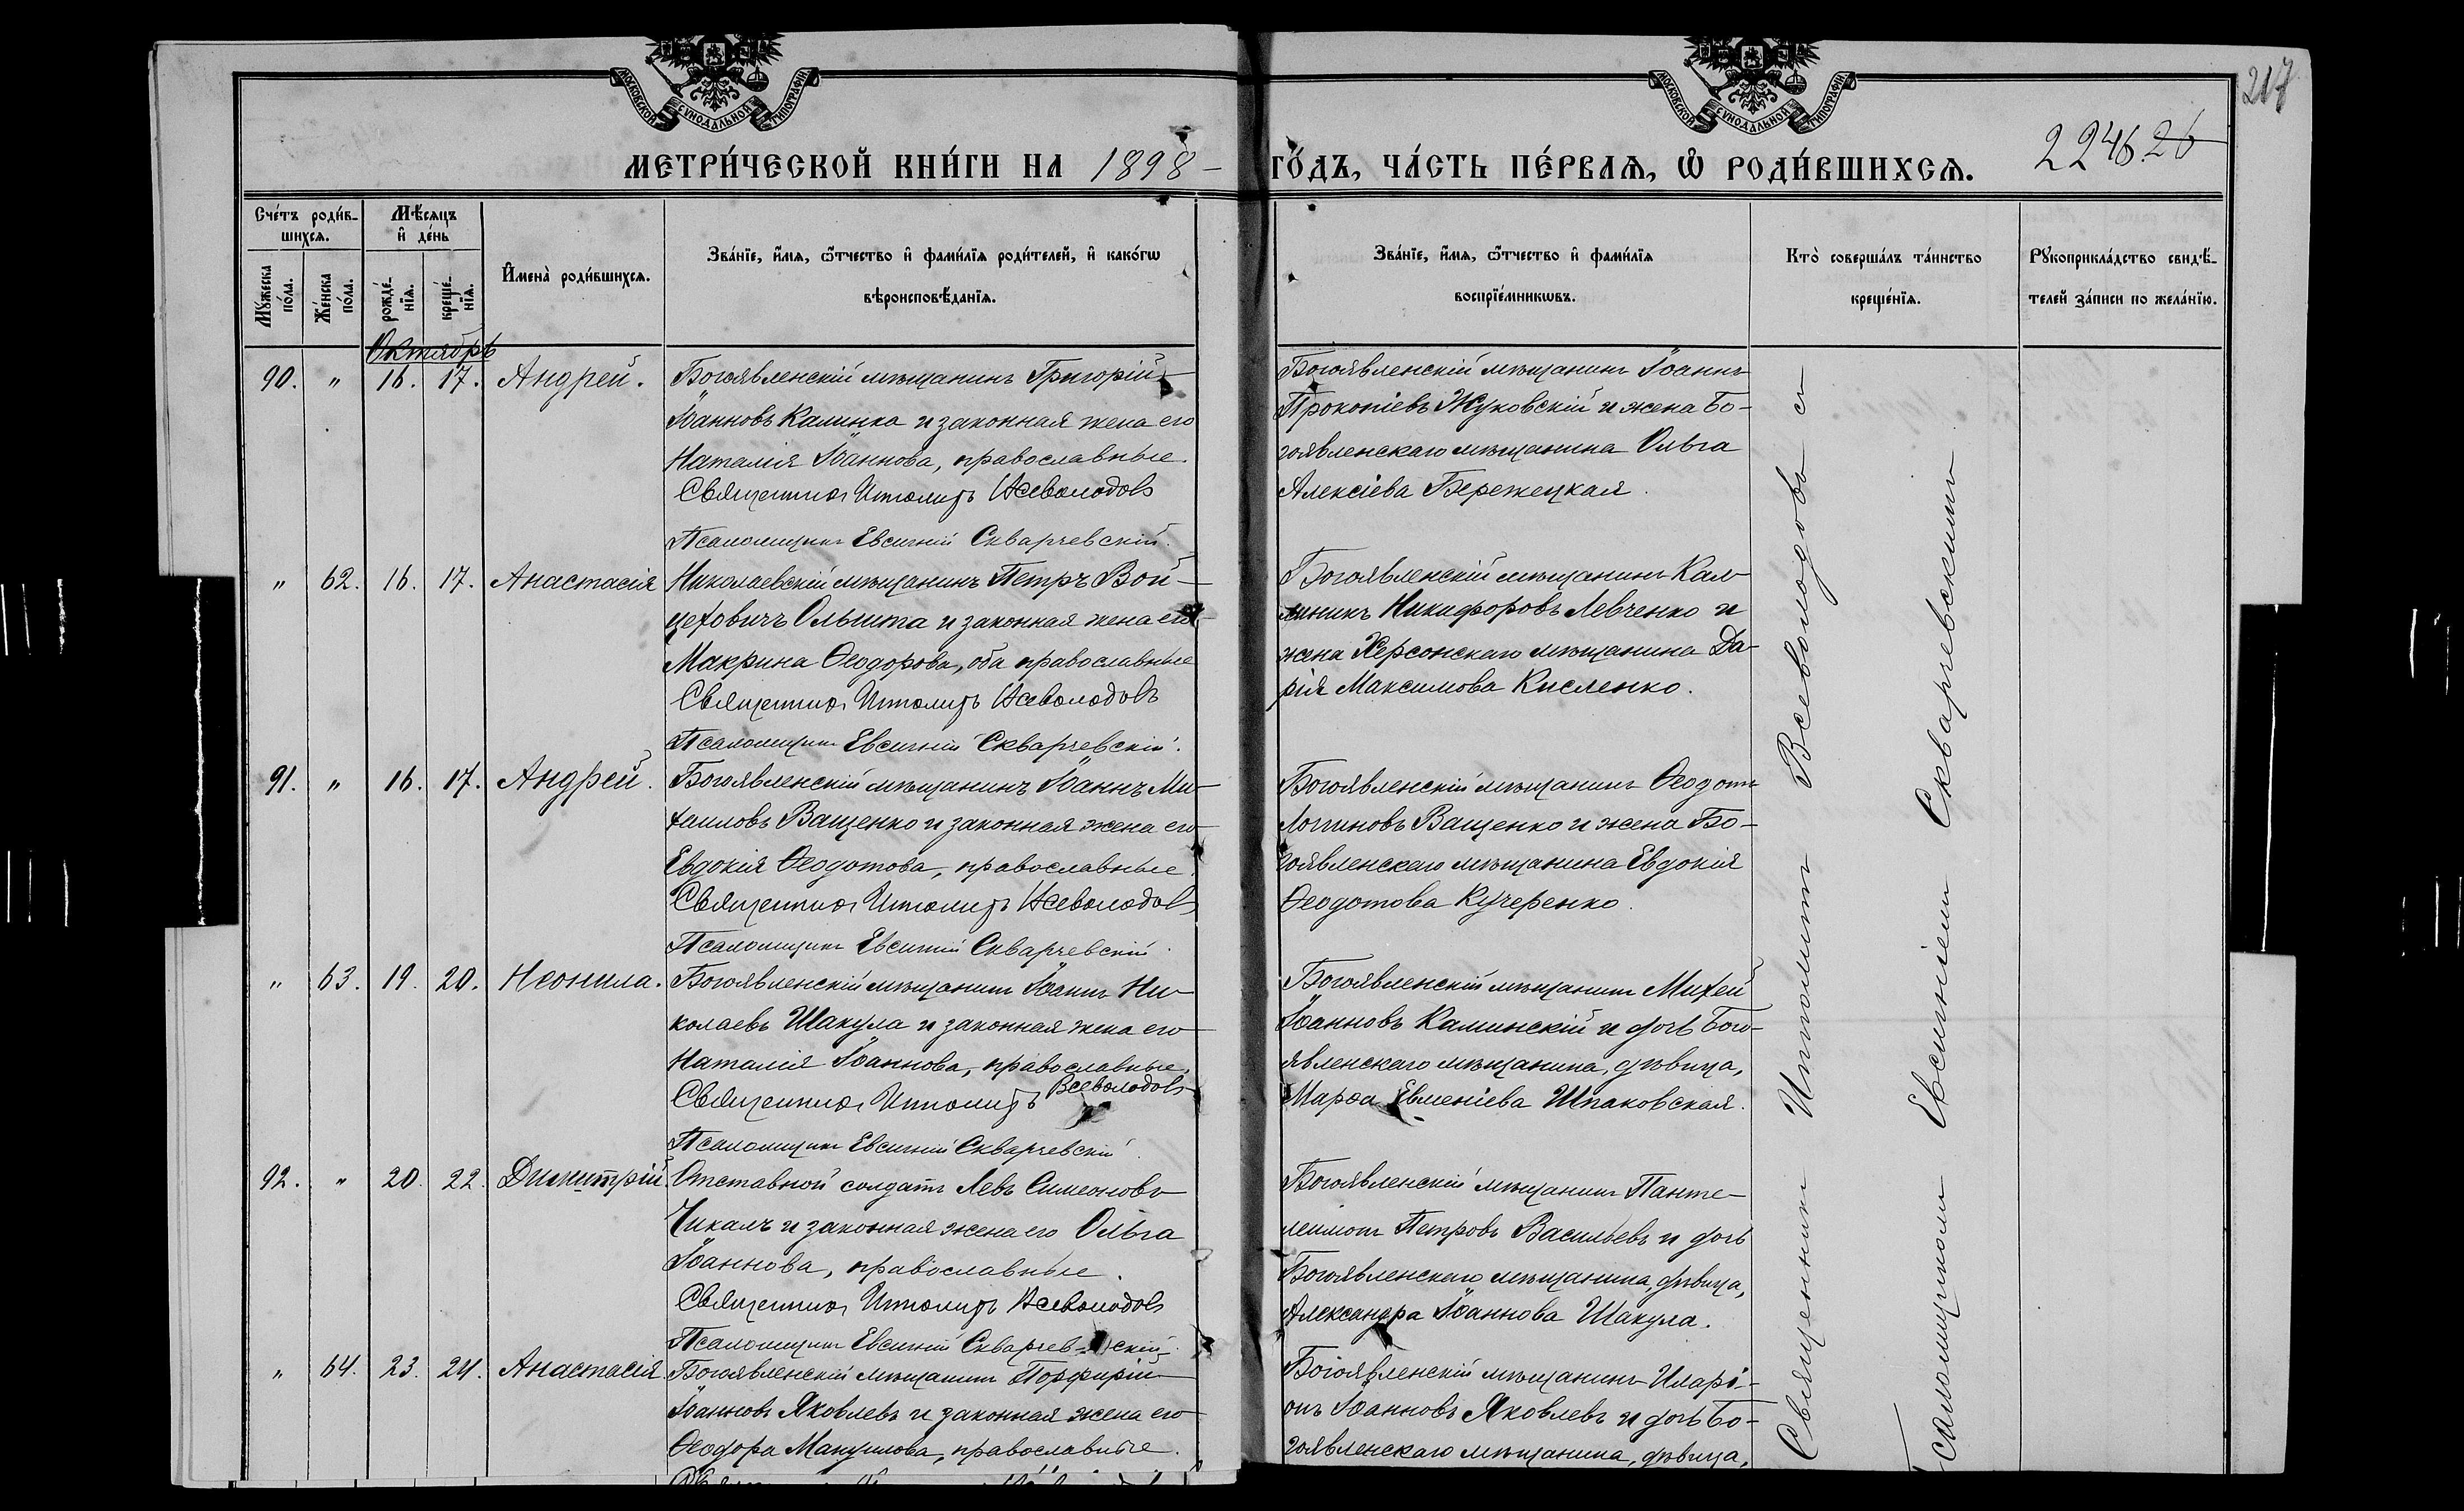 МОСКОВСКОЙ СУНОДАЛЬНОЙ ТИПОГРАФІИ
МОСКОВСКОЙ СУНОДАЛЬНОЙ ТИПОГРАФІИ
217
МЕТРИ́ЧЕСКОЙ КНИ́ГИ НА 1898 –
ГО́ДЪ, ЧА́СТЬ ПЕ́РВАѦ, Ѡ҆ РОДИ́ВШИХСѦ.
Сче́тъ роди́в-
шихсѧ.
Мѣ́сѧцъ
и҆ де́нь
Мꙋ́жеска
по́ла.
Же́нска
по́ла.
рожде́-
нїѧ.
креще́-
нїѧ.
И҆мена̀ роди́вшихсѧ.
Зва́нїе, и҆́мѧ, ѻ҆́тчество и҆ фами́лїѧ роди́телей, и҆ како́гѡ
вѣроисповѣ́данїѧ.
Зва́нїе, и҆́мѧ, ѻ҆́тчество и҆ фами́лїѧ
воспрїе́мникѡвъ.
Кто̀ соверша́лъ та́инство
креще́нїѧ.
Рꙋкоприкла́дство свидѣ́-
телей за́писи по жела́нїю.
Октябрь
90. " 16. 17. Андрей.
Богоявленскій мѣщанинъ Григорій
Іоанновъ Калинка и законная жена его
Наталія Іоаннова, православные.
Священникъ Ипполитъ Всеволодовъ
Псаломщикъ Евсигній Скварчевскій.
Богоявленскій мѣщанинъ Іоаннъ
Прокопіевъ Жуковскій и жена Бо-
гоявленскаго мѣщанина Ольга
Алексіева Бережецкая.
" 62. 16. 17. Анастасія
Николаевскій мѣщанинъ Петръ Вой-
цеховичъ Ольшта и законная жена его
Макрина Ѳеодорова, оба православные
Священникъ Ипполитъ Всеволодовъ
Псаломщикъ Евсигній Скварчевскій.
Богоявленскій мѣщанинъ Кал-
линикъ Никифоровъ Левченко и
жена Херсонскаго мѣщанина Да-
рія Максимова Кисленко.
91. " 16. 17. Андрей.
Богоявленскій мѣщанинъ Іоаннъ Ми-
хаиловъ Ващенко и законная жена его
Евдокія Ѳеодотова, православные.
Священникъ Ипполитъ Всеволодовъ
Псаломщикъ Евсигній Скварчевскій.
Богоявленскій мѣщанинъ Ѳеодотъ
Логиновъ Ващенко и жена Бо-
гоявленскаго мѣщанина Евдокія
Ѳеодотова Кучеренко.
" 63. 19. 20. Неонила.
Богоявленскій мѣщанинъ Іоаннъ Ни-
колаевъ Шакула и законная жена его
Наталія Іоаннова, православные.
Священникъ Ипполитъ Всеволодовъ
Псаломщикъ Евсигній Скварчевскій.
Богоявленскій мѣщанинъ Михей
Іоанновъ Каминскій и дочь Бого-
явленскаго мѣщанина, дѣвица,
Марѳа Евменіева Шпаковская.
92. " 20. 22. Димитрій.
Отставной солдатъ Левъ Симеоновъ
Чикалъ и законная жена его Ольга
Іоаннова, православные.
Священникъ Ипполитъ Всеволодовъ
Псаломщикъ Евсигній Скварчев-скій.
Богоявленскій мѣщанинъ Панте-
леимонъ Петровъ Васильевъ и дочь
Богоявленскаго мѣщанина, дѣвица,
Александра Іоаннова Шакула.
" 64. 23. 24. Анастасія
Богоявленскій мѣщанинъ Порфирій
Іоанновъ Яковлевъ и законная жена его
Ѳеодора Мануилова, православные.
Богоявленскій мѣщанинъ Иларі-
онъ Іоанновъ Яковлевъ и дочь Бо-
гоявленскаго мѣщанина, дѣвица,
Священникъ Ипполитъ Всеволодовъ съ
Псаломщикомъ Евсигніемъ Скварчевскимъ